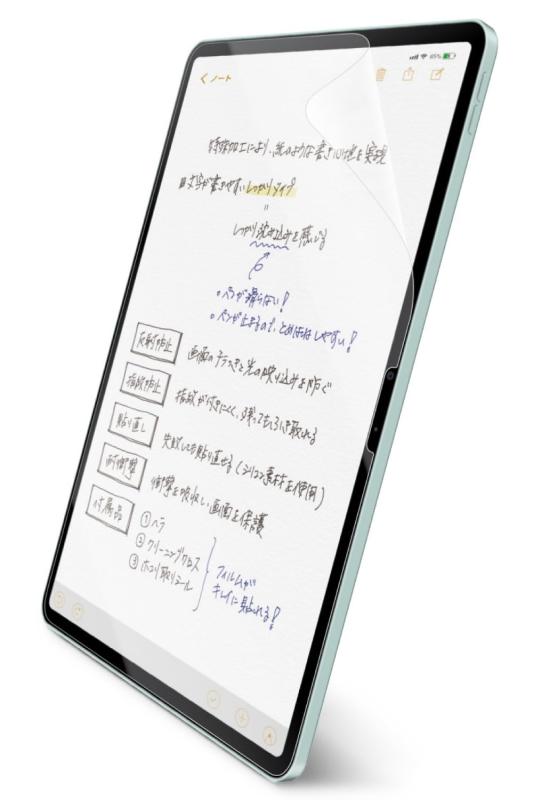 85%
ノート
特殊加工により、紙のような書き心地を実現
文字が書きやすいしっかりタイプ
=
しっかり沈み込みを感じる
○ペンが滑らない!
○ペンが止まるので、とめはねしやすい!
反射防止 画面のチラつきと光の映り込みを防ぐ
指紋防止 指紋が付きにくく、残ってもふき取れる
貼り直し 失敗しても貼り直せる(シリコン素材を使用)
耐衝撃 衝撃を吸収し画面を保護
付属品 ①ヘラ
②クリーニングクロス
③ホコリ取りシール
フィルムが
キレイに貼れる!